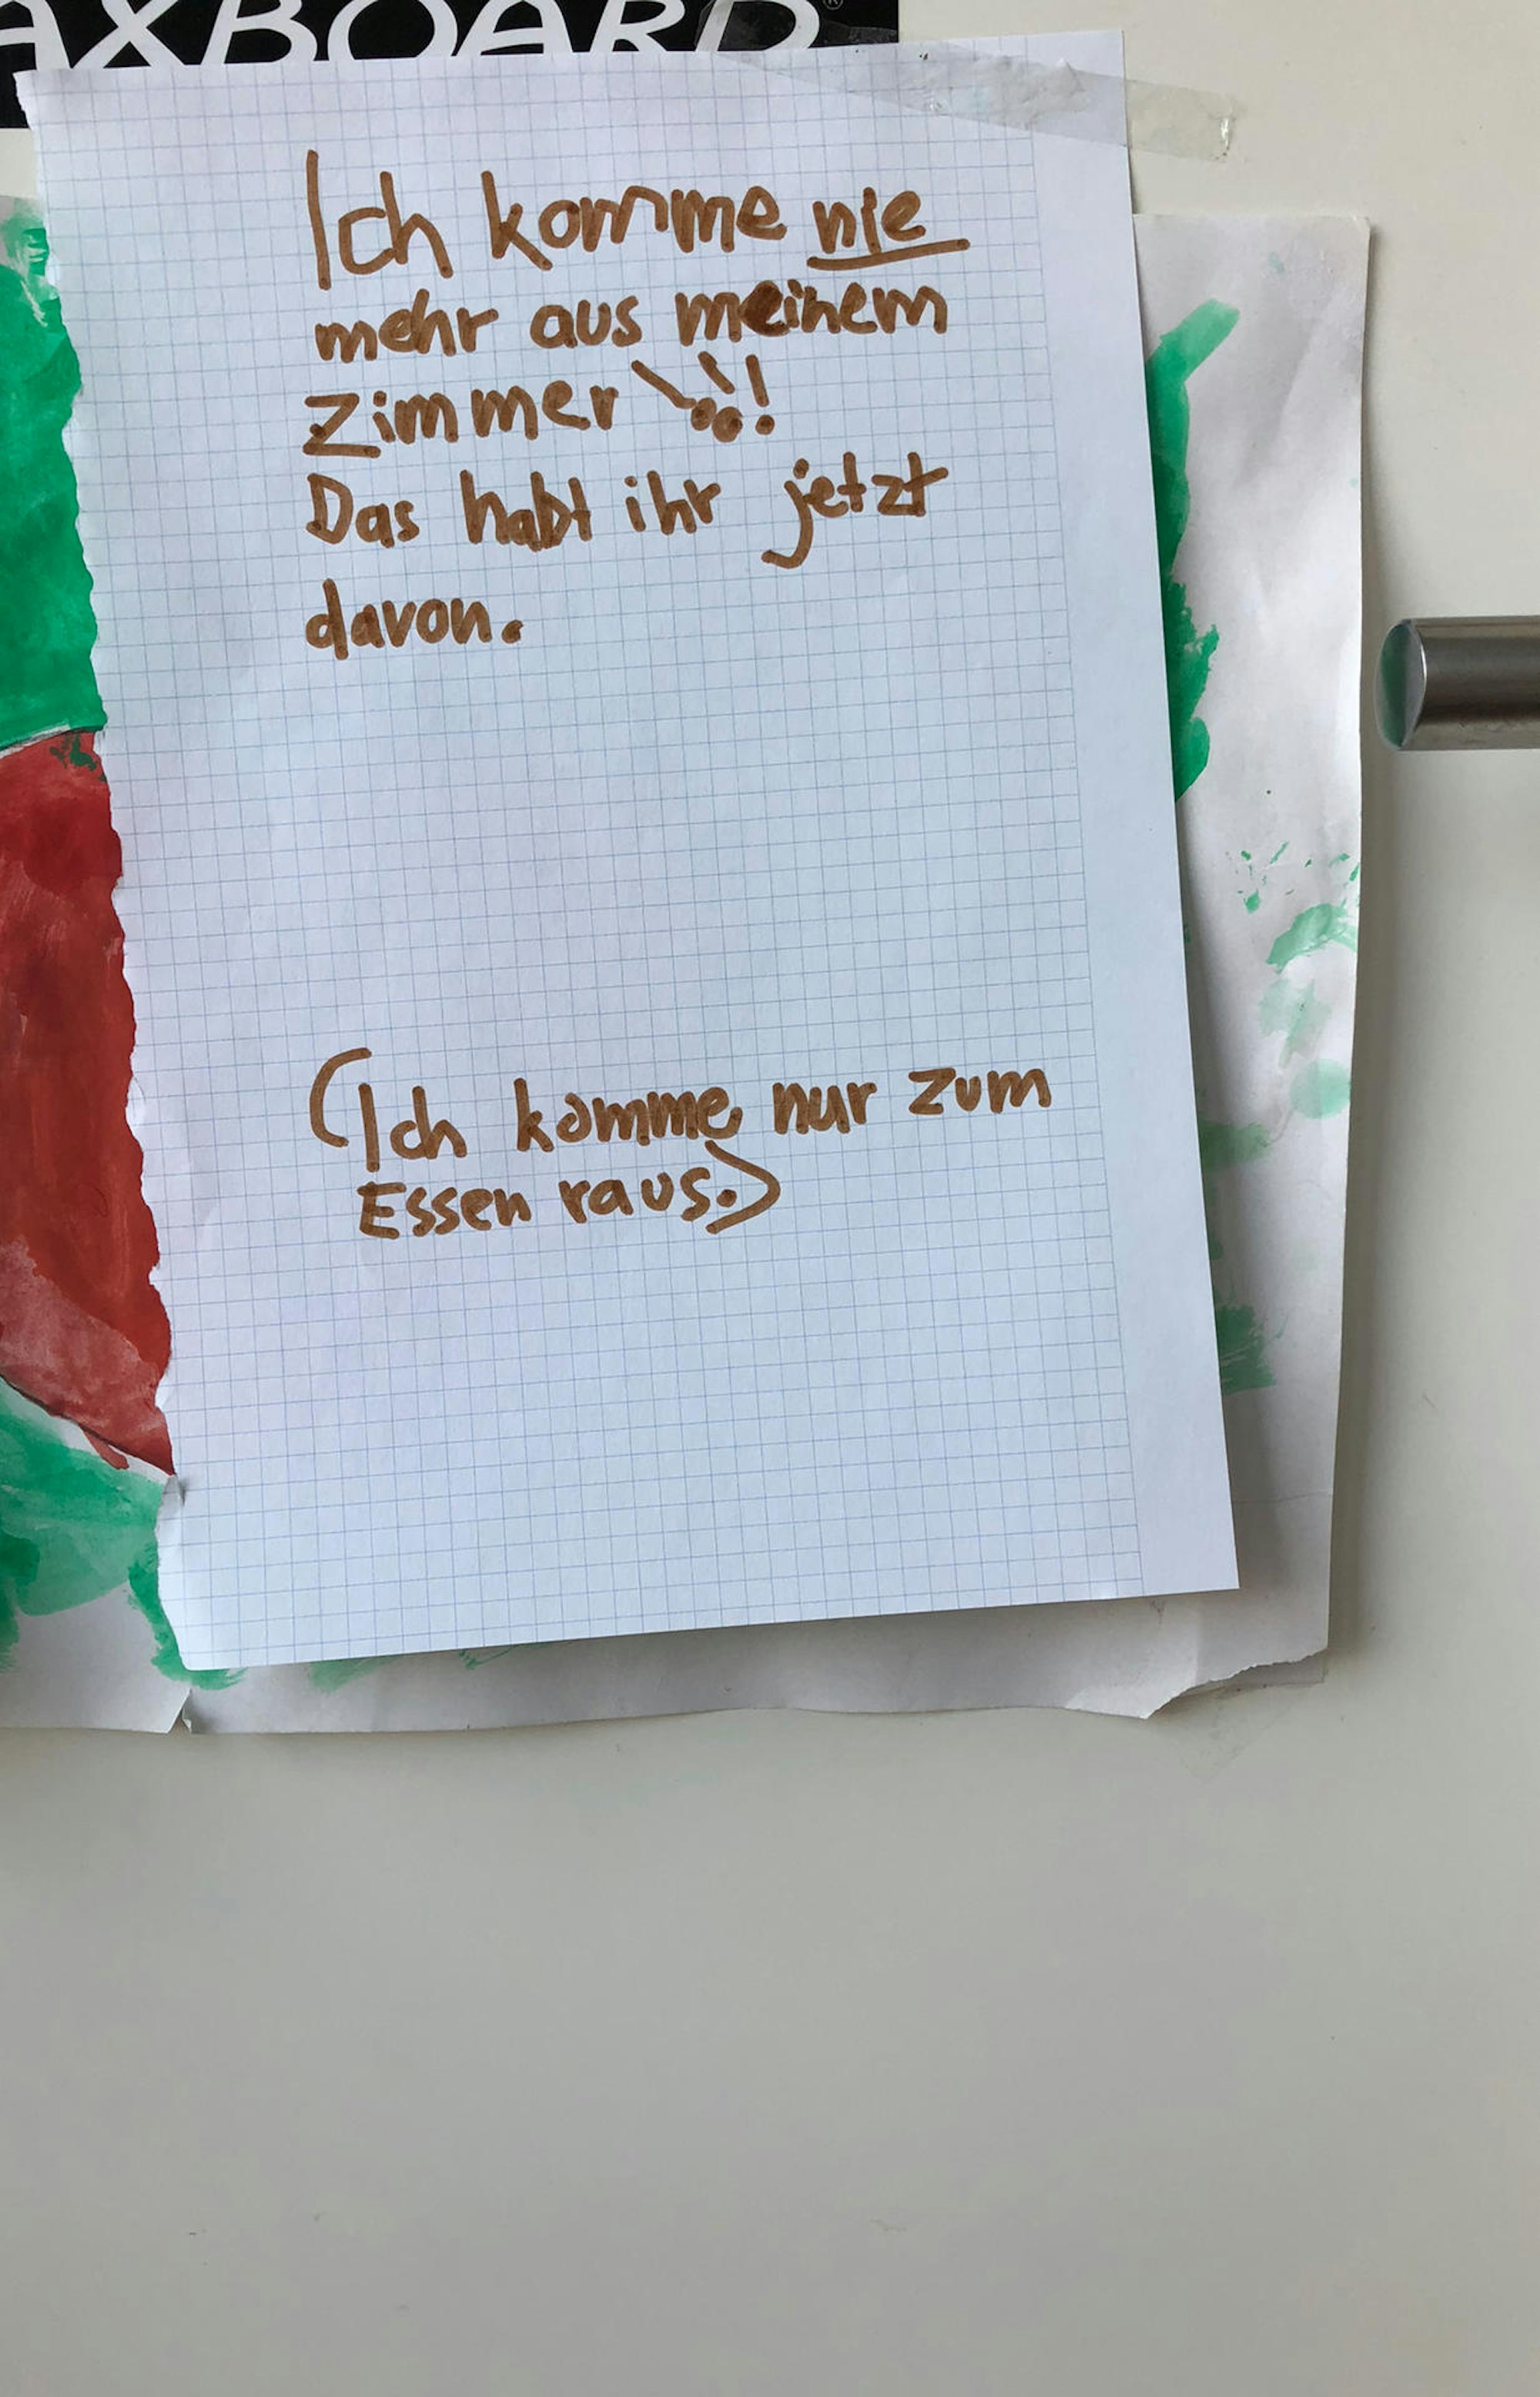 AXBOARD®
Ich komme nie
mehr aus meinem
Zimmer!!!
Das habt ihr jetzt
davon.
(Ich komme nur zum
Essen raus.)